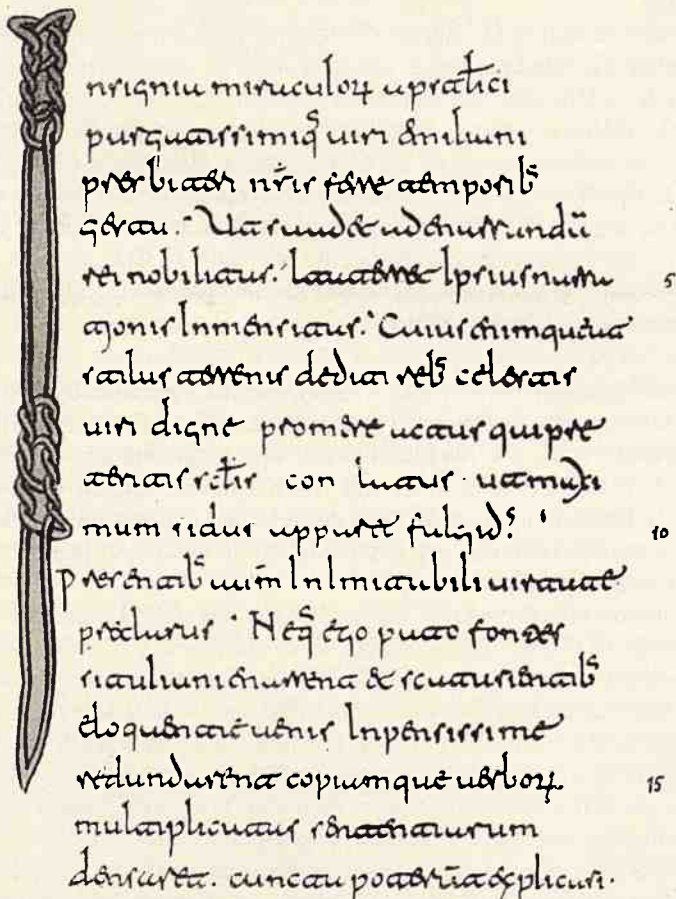 Insignia miraculoꝝ apostl̅ici
purgatissimiqꝫ uiri emiliani
presbiteri nr̅is fere temporibꝫ
gesta. Ut suadet ad enarrandū
rei nobilitas. ita terret Ipsius narra
tionis Inmensitas. Cuius enim queat
stilus terrenis dediti rebꝫ celestis
uiri digne promere actus qui pre
teritis sc̅lis con latus ut maxi
mum sidus apparet fulgidꝰ.
presentibꝫ aūm InImitabili uirtute
preclarus. Neqꝫ ego puto fontes
si tulliani emanent & scaturientibꝫ
eloquentie uenis Inpensissime
redundarent copiamque uerboꝝ
multiplicatas sententiarum
densaret. cuncta poterūt explicari.
5
10
15